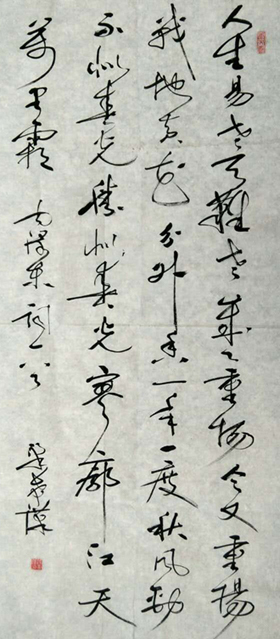 人生易老天難老歲々重陽今又重陽
戰地黃花分外香一年一度秋風勁
不似春光勝似春光寥廓江天
萬里霜 毛澤東詞一首